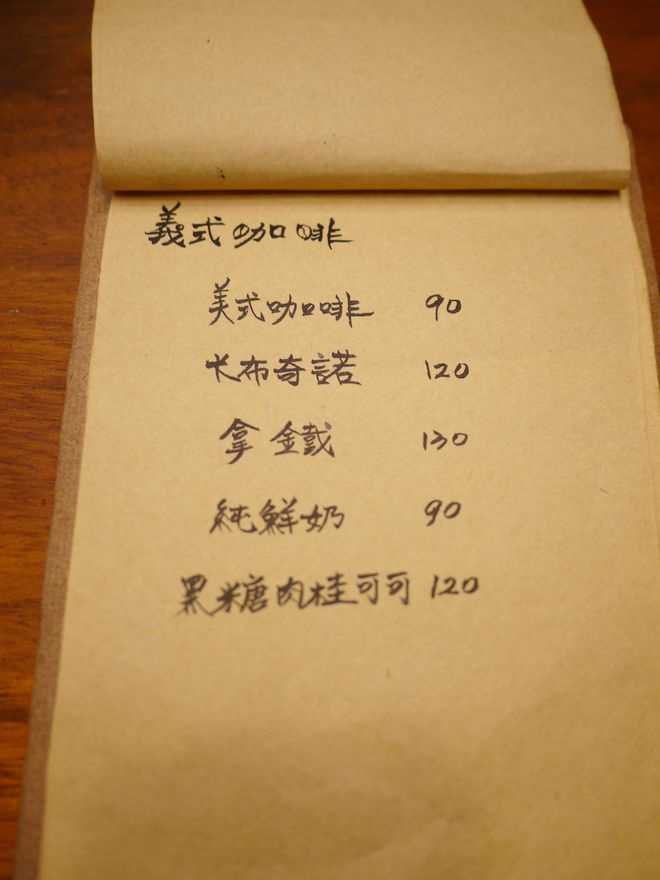 義式咖啡
美式咖啡 90
卡布奇諾 120
拿鐵 130
純鮮奶 90
黑糖肉桂可可 120